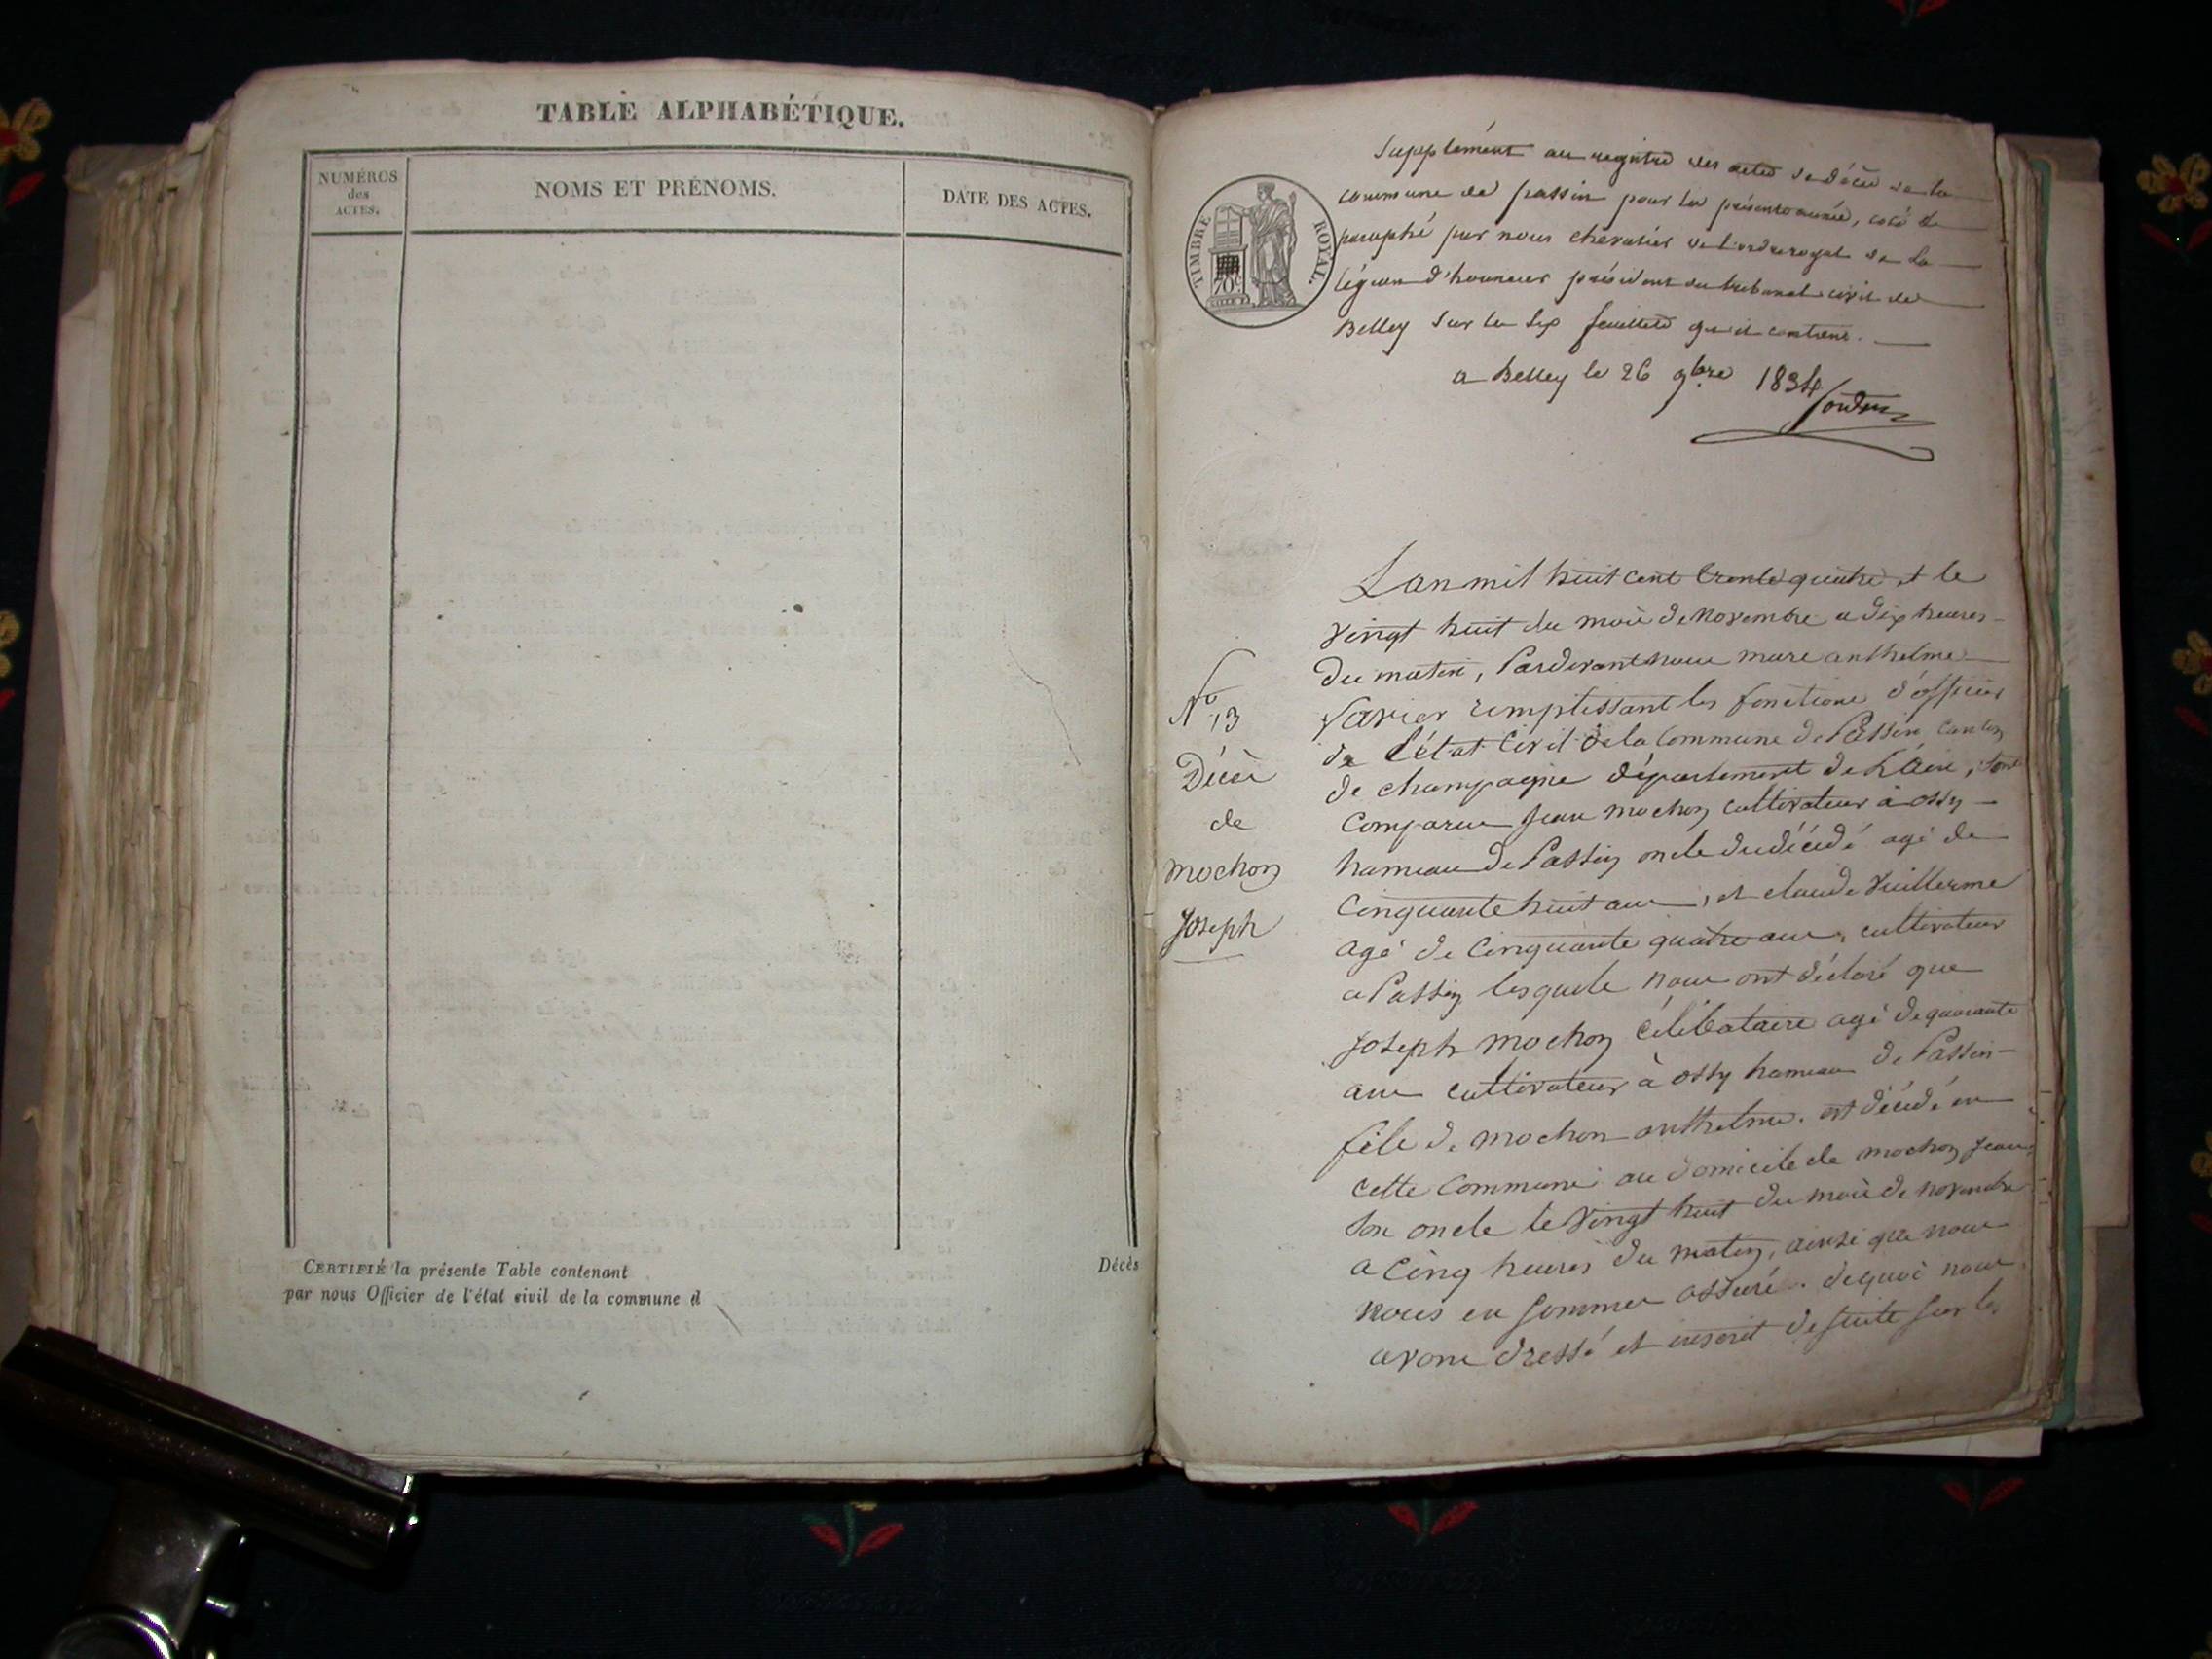 TABLE ALPHABÉTIQUE.
NUMÉROS
des
ACTES.
NOMS ET PRÉNOMS.
DATE DES ACTES.
CERTIFIÉ la présente Table contenant
Décès
par nous Officier de l'état civil de la commune d
TIMBRE ROYAL.
70 c.
Supplément au registre des actes de décès de la
commune de passin pour la présente année, coté &
paraphé par nous chevalier de l'ordre royal de la
légion d'honneur président du tribunal civil de
Belley sur les six feuillets qu'il contient.
a Belley le 26 9bre 1834
N° 13
Décès
de
mochon
Joseph
L'an mil huit cent trente quatre et le
vingt huit du mois de novembre a dix heures
du matin, Pardevant nous maire anthelme
Savier remplissant les fonctions d'officier
de l'état civil de la Commune de Passin, canton
de champagne département de L'Ain, sont
Comparus Jean mochon cultivateur à ossy
hameau de Passin oncle du décédé agé de
Cinquante huit ans, et claude Vuillerme
agé de Cinquante quatre ans, cultivateur
a Passin lesquels nous ont déclaré que
Joseph mochon célibataire agé de quarante
ans cultivateur à ossy hameau de Passin
fils de mochon anthelme. est décédé en
cette Commune au domicile de mochon Jean
son oncle le vingt huit du mois de novembre
a cinq heures du matin, ainsi que nous
nous en sommes assuré. dequoi nous
avons dressé et inscrit desuite sur les